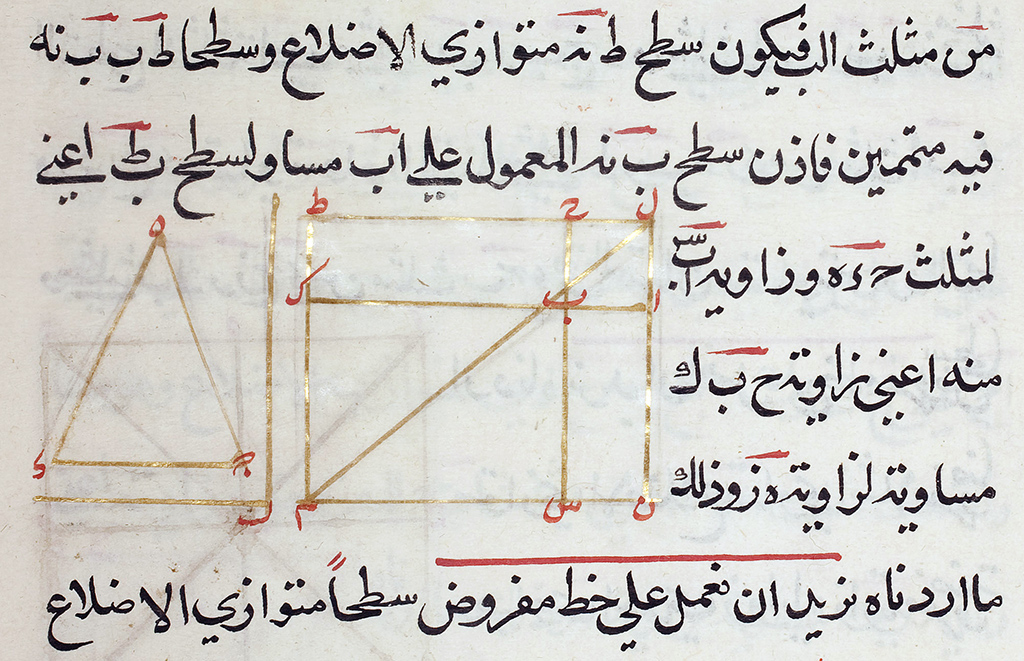 من مثلث الب فيكون سطح ط نه متوازي الاضلاع وسطحا ط ب ب نه
فيه متممين فاذن سطح ب نه المعمول علي اب مساو لسطح بط اعني
لمثلث حءه وزاوية اب س
منه اعني زاوية ح ب ك
مساوية لزاوية ز وذلك
ما اردناه نريد ان نعمل علي خط مفروض سطحاً متوازي الاضلاع
ل ح ط
ه
ا ب ك
ج ء
ن س م